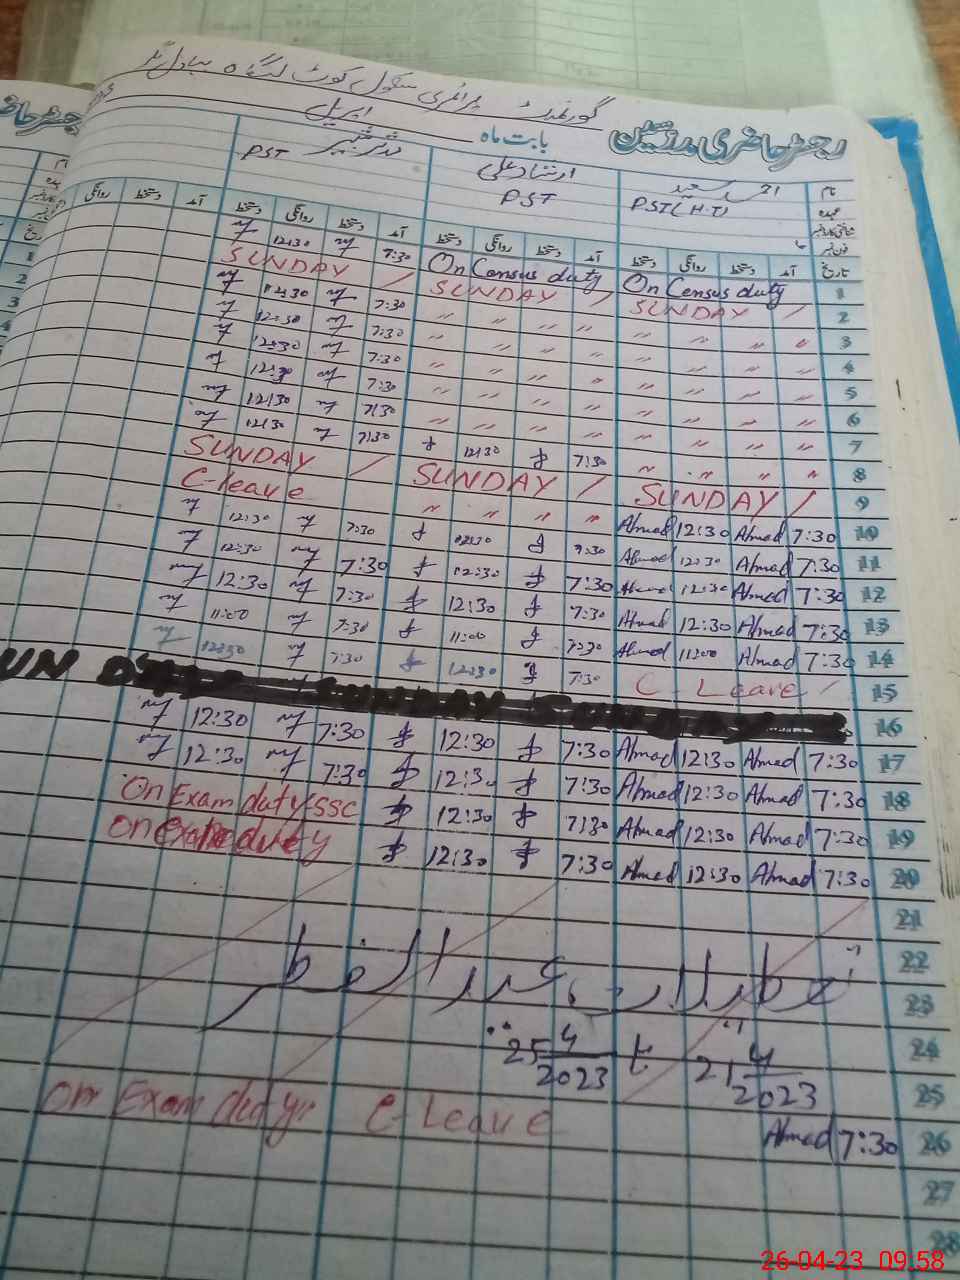 گورنمنٹ پرائمری سکول کوٹ
رجسٹر حاضری مدرسین
بابت ماہ اپریل
نام
عہدہ PST(H.T) PST PST
ارشاد علی
تاریخ آمد دستخط روانگی دستخط آمد دستخط روانگی دستخط آمد دستخط روانگی دستخط آمد دستخط روانگی
1 On Census duty On Census duty 7:30 12:30
2 SUNDAY SUNDAY SUNDAY
3 " " " " " " " " 7:30 12:30
4 " " " " " " " " 7:30 12:30
5 " " " " " " " " 7:30 12:30
6 " " " " " " " " 7:30 12:30
7 " " " " " " " " 7:30 12:30
8 " " " " 7:30 12:30 7:30 12:30
9 SUNDAY SUNDAY SUNDAY
10 7:30 Ahmad 12:30 Ahmad " " " " C-leave
11 7:30 Ahmad 12:30 Ahmad 7:30 12:30 7:30 12:30
12 7:30 Ahmad 12:30 Ahmad 7:30 12:30 7:30 12:30
13 7:30 Ahmad 12:30 Ahmad 7:30 12:30 7:30 12:30
14 7:30 Ahmad 11:00 Ahmad 7:30 11:00 7:30 11:00
15 C-Leave 7:30 12:30 7:30 12:30
16 SUNDAY SUNDAY
17 7:30 Ahmad 12:30 Ahmad 7:30 12:30 7:30 12:30
18 7:30 Ahmad 12:30 Ahmad 7:30 12:30 7:30 12:30
19 7:30 Ahmad 12:30 Ahmad 7:30 12:30 On Exam duty SSC
20 7:30 Ahmad 12:30 Ahmad 7:30 12:30 On Exam duty
21
22 تعطیلات عید الفطر
23
24 21 4/2023 تا 25 4/2023
25
26 7:30 Ahmad C-Leave On Exam duty
27
28
26-04-23 09:58